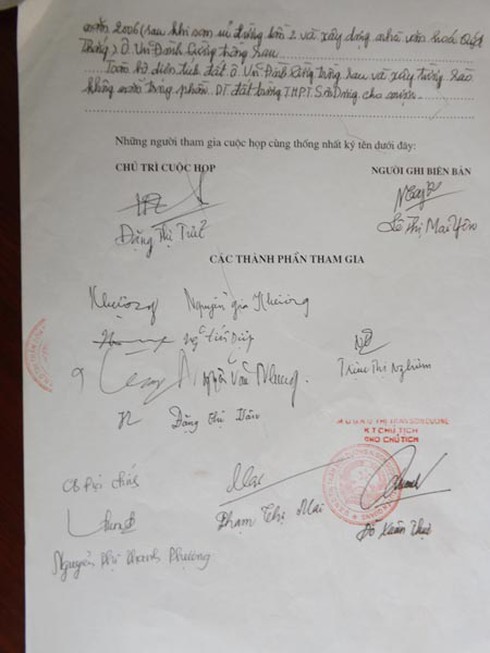 năm 2006 (sau khi sửa đường lần 2 và xây dựng nhà văn hoá Quyết
Thắng) Ô. Vũ Đình Lương trồng rau.
Toàn bộ diện tích đất Ô. Vũ Đình Lương trồng rau và xây tường rào
không nằm trong phần DT đất trường THPT Sơn Dương cho mượn.
Những người tham gia cuộc họp cùng thống nhất ký tên dưới đây:
CHỦ TRÌ CUỘC HỌP NGƯỜI GHI BIÊN BẢN
Đặng Thị Lê Thị Mai Yên
CÁC THÀNH PHẦN THAM GIA
Khương Nguyễn Gia Khương
Tiến Điệp
Nguyễn Văn Trần Thị Nghiêm
Đặng Thị Dân
K.T CHỦ TỊCH
PHÓ CHỦ TỊCH
CB Địa chính Mai
Phạm Thị Mai Đỗ Xuân
Nguyễn Thị Thanh Phương